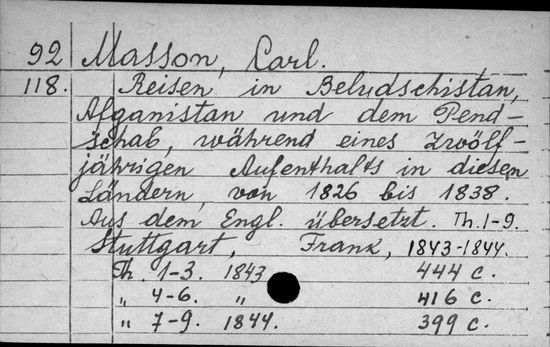 92 Masson, Carl.
118. Reisen in Beludschistan,
Afganistan und dem Pend-
schab, während eines zwölf-
jährigen Aufenthalts in diesen
Ländern, von 1826 bis 1838.
Aus dem Engl. übersetzt. Th. 1-9.
Stuttgart, Frank, 1843-1844.
Th. 1-3. 1843 444 c.
„ 4-6. „ 416 c.
„ 7-9. 1844. 399 c.